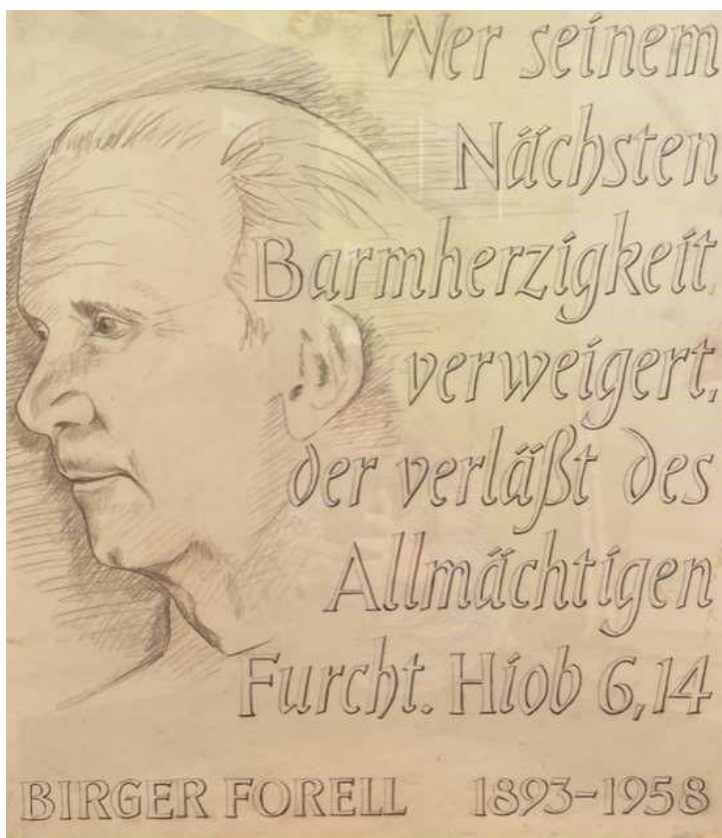 Wer seinem
Nächsten
Barmherzigkeit
verweigert,
der verläßt des
Allmächtigen
Furcht. Hiob 6,14
BIRGER FORELL 1893-1958